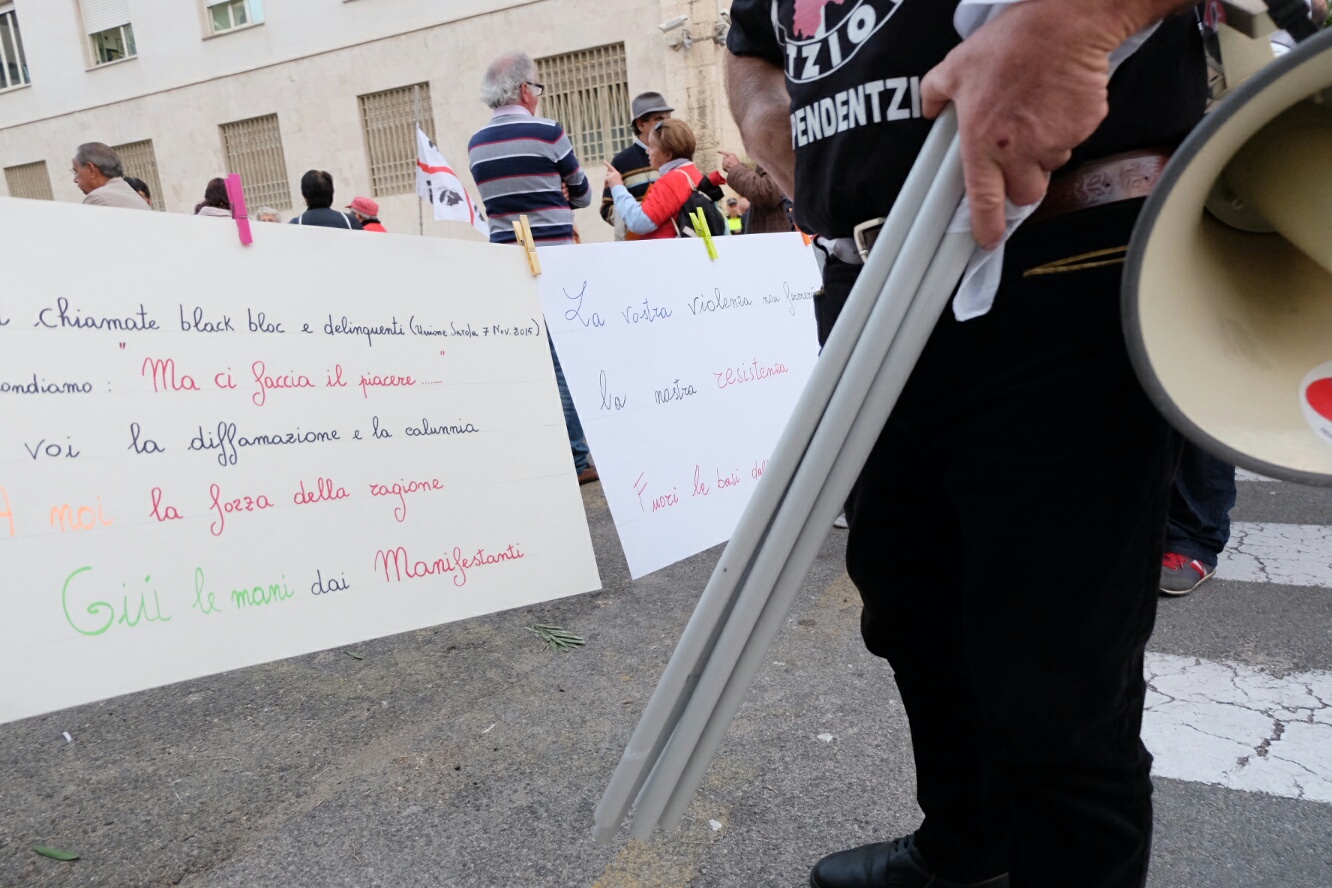 chiamate black bloc e delinquenti (Unione Sarda 7 Nov. 2015)
ondiamo: "Ma ci faccia il piacere ....."
voi la diffamazione e la calunnia
A noi la forza della ragione
Giù le mani dai Manifestanti
La vostra violenza non
la nostra resistenza
Fuori le basi
TZIO
PENDENTZI